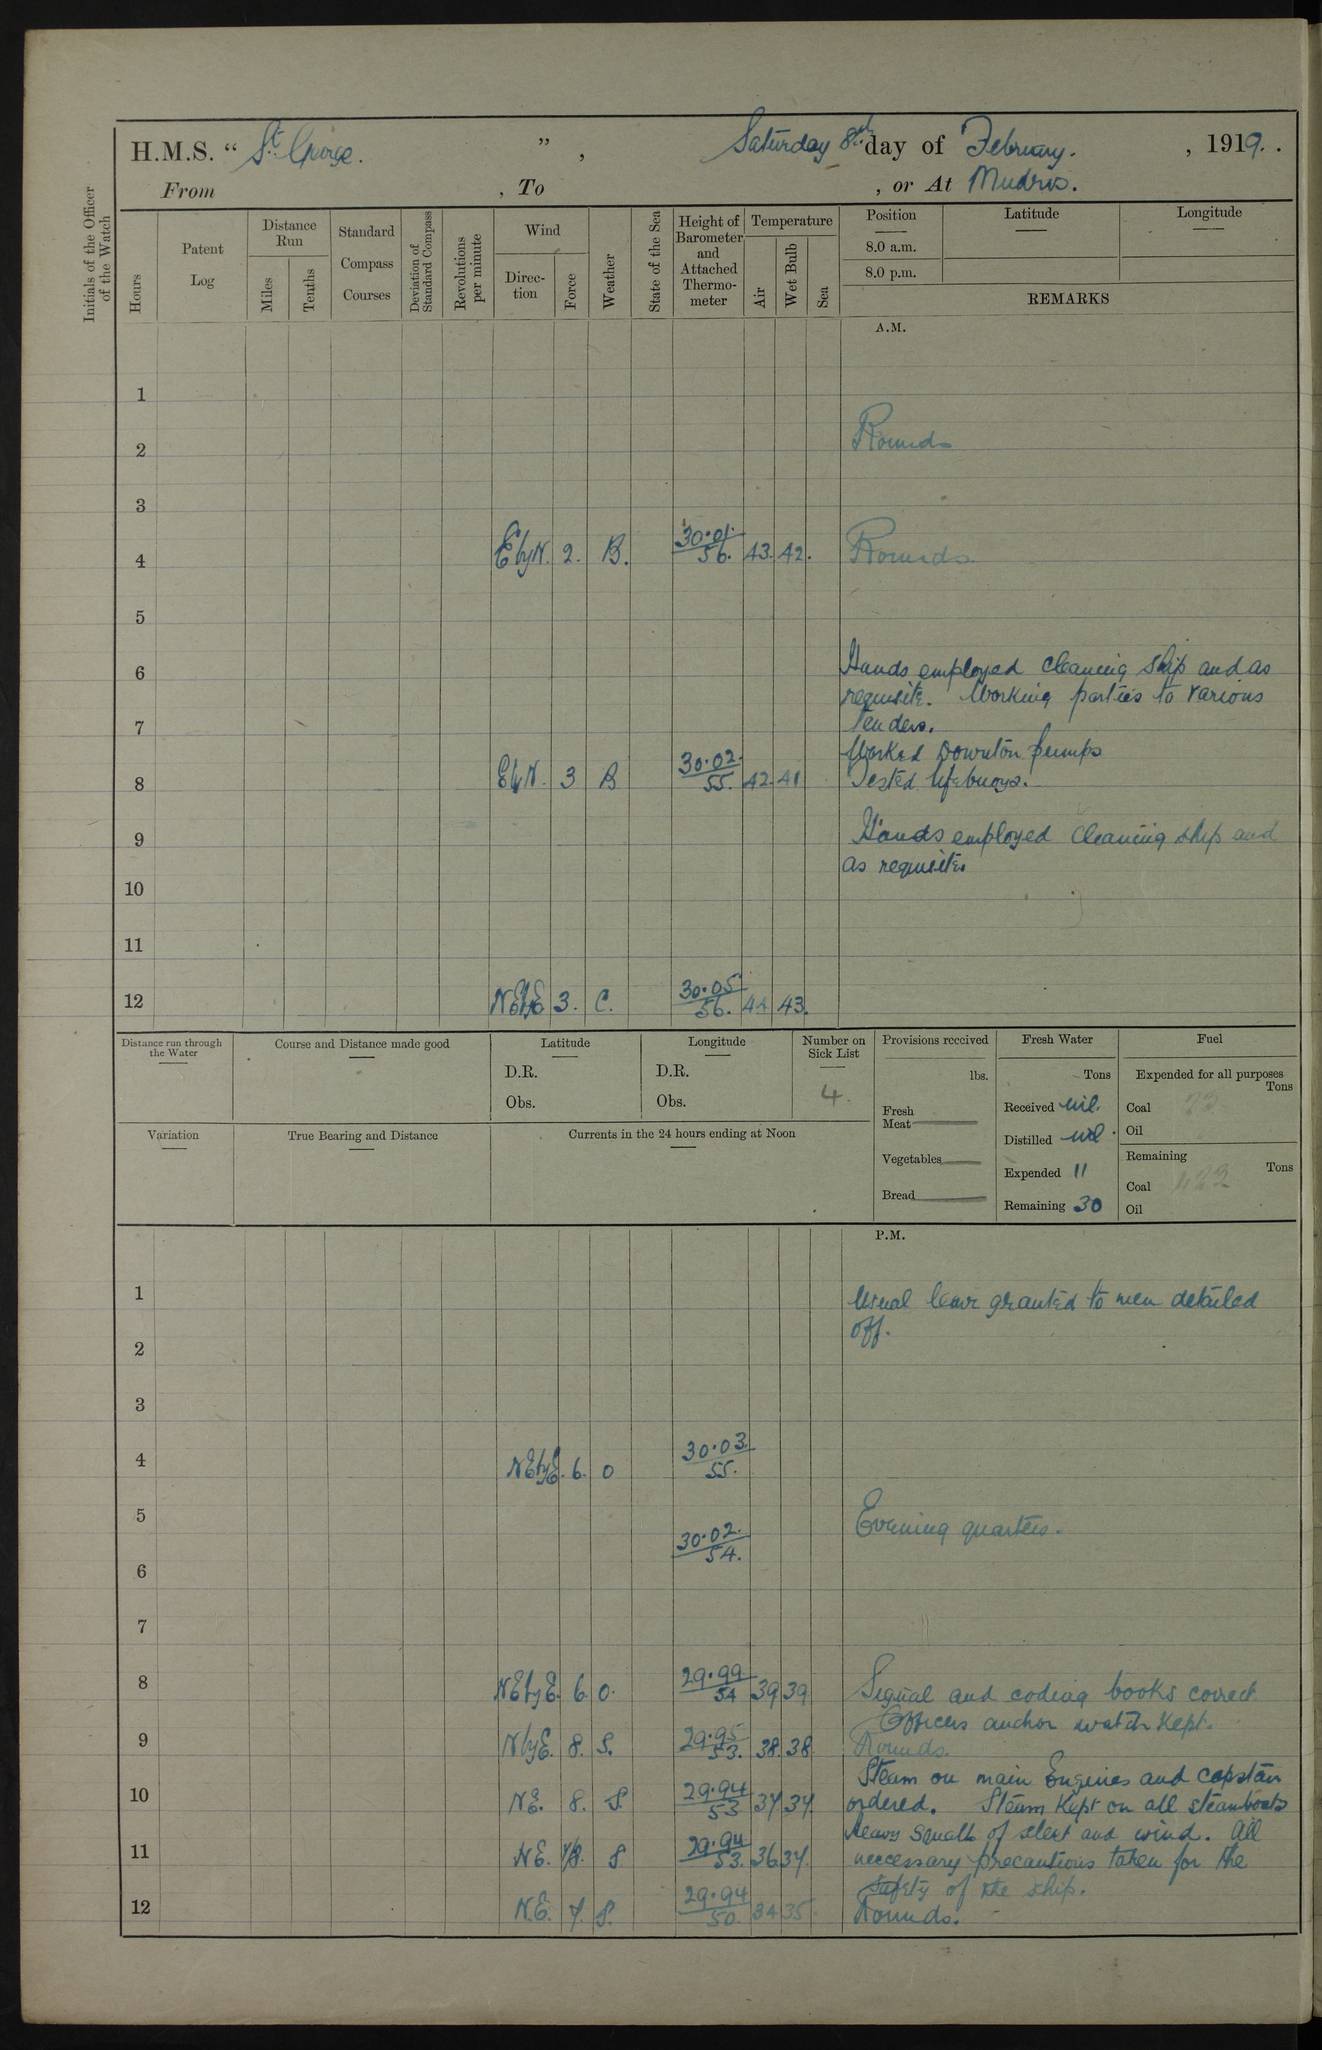 H.M.S. “ St. George. ” , Saturday 8th day of February. , 1919.
From , To , or At Mudros.
Initials of the Officer of the Watch
Hours
Patent Log
Distance Run
Miles
Tenths
Standard Compass Courses
Deviation of Standard Compass
Revolutions per minute
Wind
Direction
Force
Weather
State of the Sea
Height of Barometer and Attached Thermometer
Temperature
Air
Wet Bulb
Sea
Position
8.0 a.m.
8.0 p.m.
Latitude
Longitude
REMARKS
A.M.
1
2 Rounds
3
4 E by N. 2. B. 30.01. 56. 43. 42. Rounds.
5
6 Hands employed cleaning ship and as
requisite. Working parties to various
7 tenders.
Worked Downton pumps
8 E by N. 3 B 30.02. 55. 42. 41 Tested lifebuoys.
9 Hands employed cleaning ship and
as requisite.
10
11
12 NE by E 3. C. 30.05 56. 44 43.
Distance run through the Water
Course and Distance made good
Latitude
D.R.
Obs.
Longitude
D.R.
Obs.
Number on Sick List
4.
Provisions received
lbs.
Fresh Meat
Vegetables
Bread
Fresh Water
Tons
Received nil.
Distilled nil.
Expended 11
Remaining 30
Fuel
Expended for all purposes
Tons
Coal 23
Oil
Remaining
Tons
Coal
Oil
Variation
True Bearing and Distance
Currents in the 24 hours ending at Noon
P.M.
1 Usual leave granted to men detailed
off.
2
3
4 NE by E. 6. O 30.03. 55.
5 Evening quarters.
30.02. 54.
6
7
8 NE by E. 6 O. 29.99 54 39 39 Signal and coding books correct
Officers anchor watch kept.
9 N by E. 8. S. 29.95 53. 38. 38 Rounds.
Steam on main Engines and capstan
10 NE. 8. S. 29.94 53 37 37 ordered. Steam kept on all steamboats
Heavy squalls of sleet and wind. All
11 NE. 7/8. S 29.94 53. 36 37. neccessary precautions taken for the
safety of the ship.
12 N.E. 7. S. 29.94 50. 34 35 Rounds.